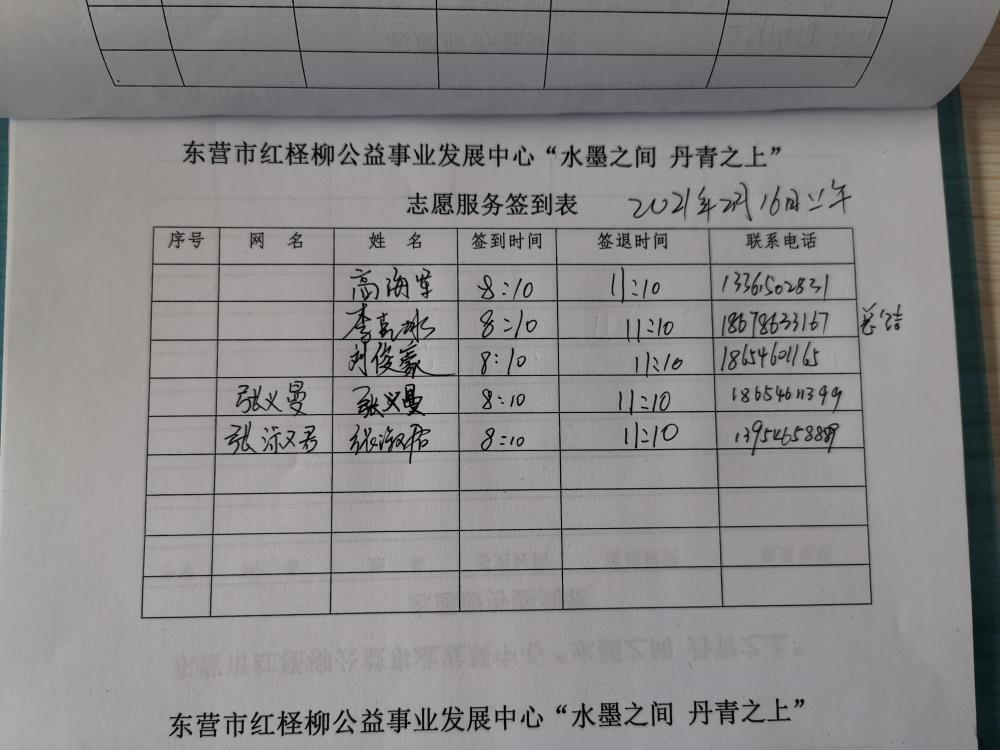 东营市红柽柳公益事业发展中心“水墨之间 丹青之上”
志愿服务签到表 2021年2月16日上午
序号 网 名 姓 名 签到时间 签退时间 联系电话
高海军 8:10 11:10 13361502831
8:10 11:10 18678633167 总结
刘俊義 8:10 11:10 18654601165
张义曼 张义曼 8:10 11:10 18654611399
张淑君 张淑君 8:10 11:10 13954658889
东营市红柽柳公益事业发展中心“水墨之间 丹青之上”